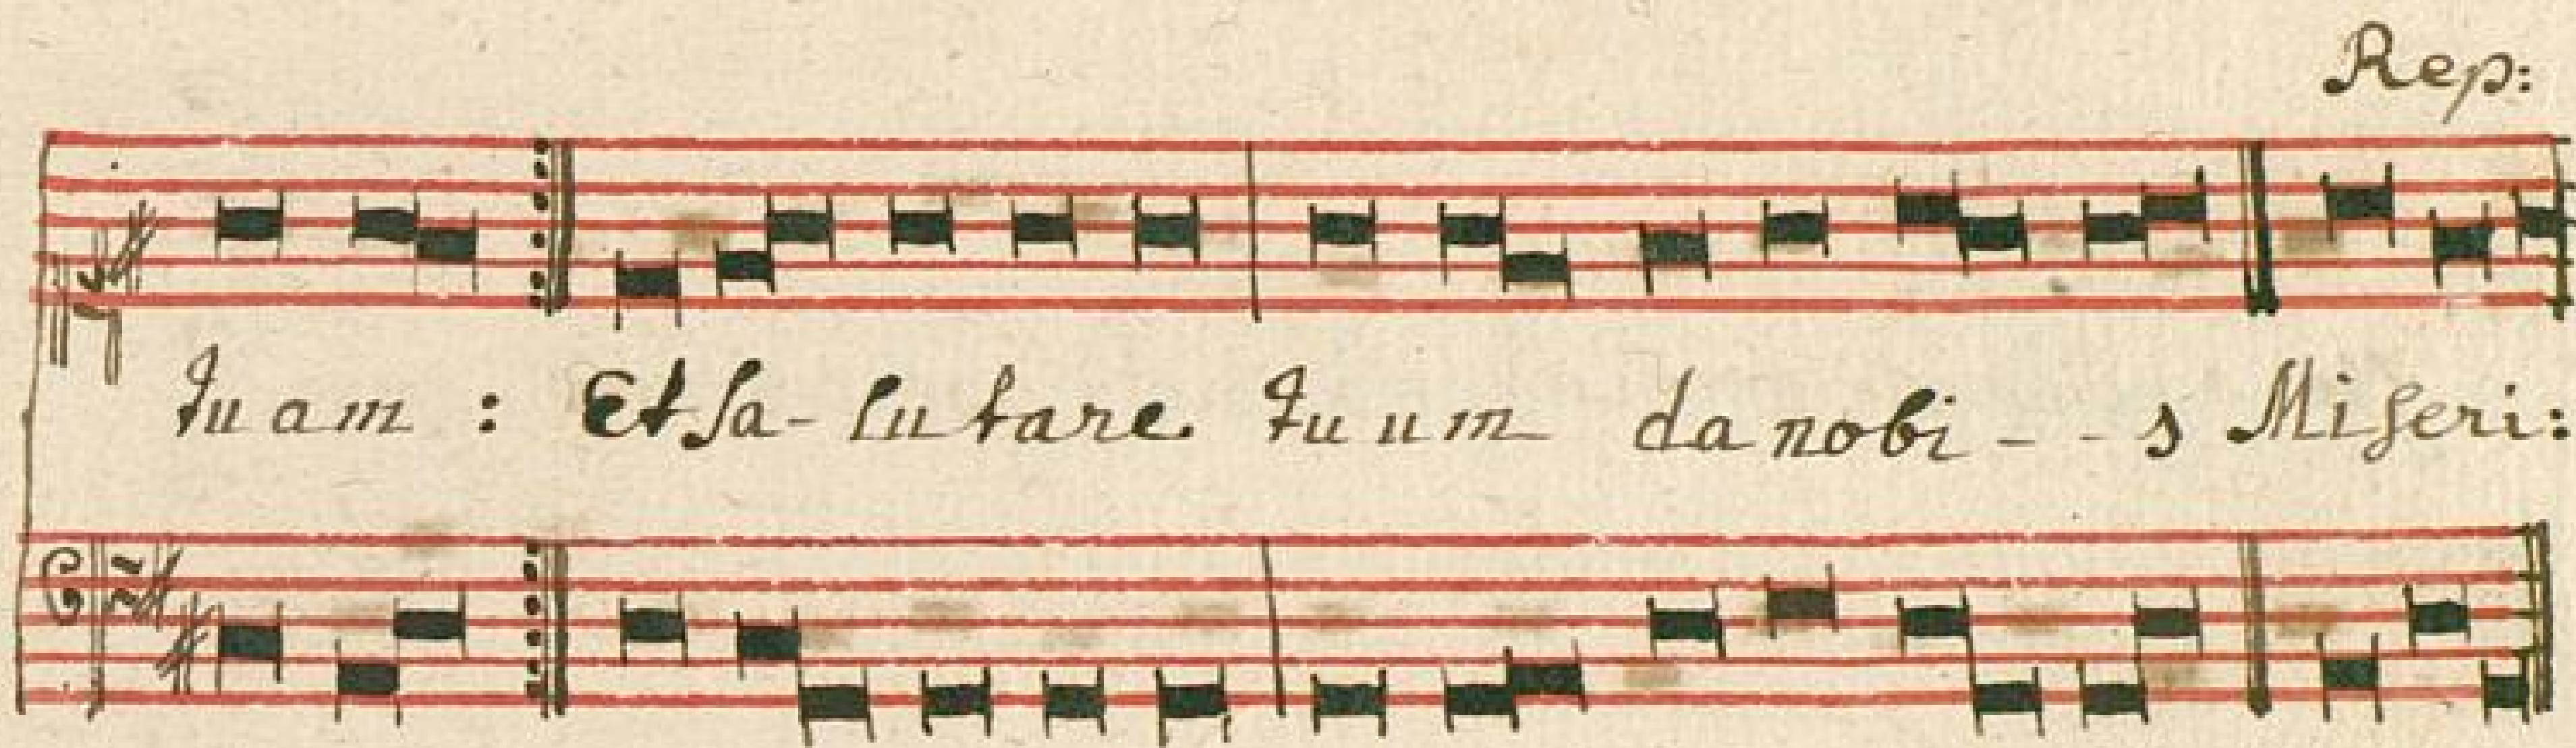 Rep:
tuam : Et sa- lutare tuum da nobi - - s Miseri: